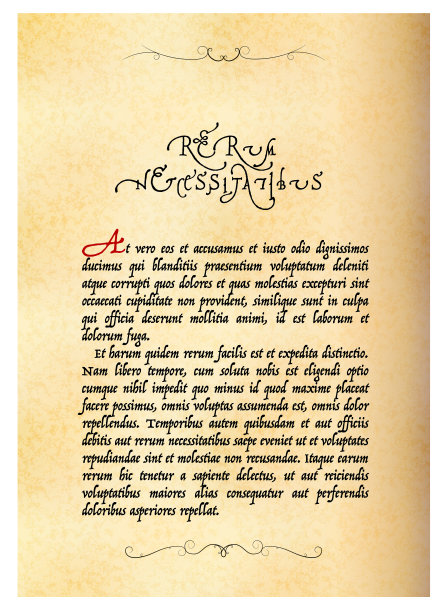 RERUM
NECESSITATIBUS
At vero eos et accusamus et iusto odio dignissimos
ducimus qui blanditiis praesentium voluptatum deleniti
atque corrupti quos dolores et quas molestias excepturi sint
occaecati cupiditate non provident, similique sunt in culpa
qui officia deserunt mollitia animi, id est laborum et
dolorum fuga.
Et harum quidem rerum facilis est et expedita distinctio.
Nam libero tempore, cum soluta nobis est eligendi optio
cumque nihil impedit quo minus id quod maxime placeat
facere possimus, omnis voluptas assumenda est, omnis dolor
repellendus. Temporibus autem quibusdam et aut officiis
debitis aut rerum necessitatibus saepe eveniet ut et voluptates
repudiandae sint et molestiae non recusandae. Itaque earum
rerum hic tenetur a sapiente delectus, ut aut reiciendis
voluptatibus maiores alias consequatur aut perferendis
doloribus asperiores repellat.